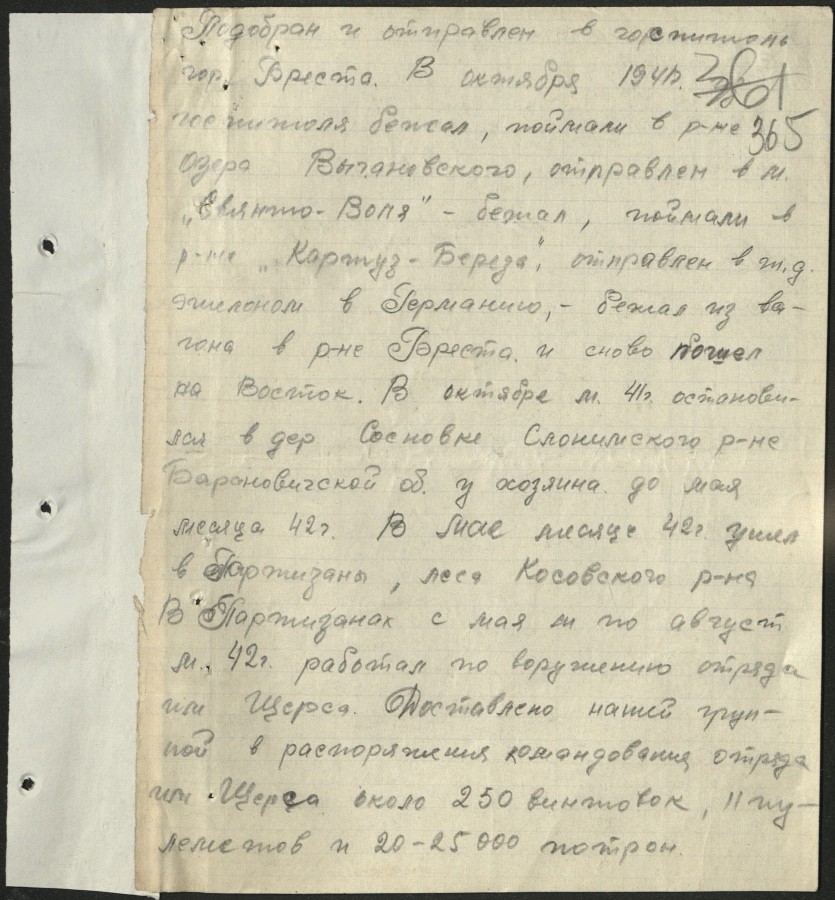 Подобран и отправлен в горспиталь
гор. Бреста. В октября 1941г. 361
госпиталя бежал, поймали в р-не 365
Озера Выгановского, отправлен в м.
„Свянто-Воля" - бежал, поймали в
р-не „Картуз-Береза", отправлен в ж.д.
эшелоном в Германию, - бежал из ва-
гона в р-не Бреста. и сново пошел
на Восток. В октябре м. 41г. останови-
лся в дер Сосновке Слонимского р-не
Барановичской об. у хозяина до мая
месяца 42г. В мае месяце 42г. ушел
в Партизаны, леса Косовского р-на
В Партизанах с мая м по август
м. 42г. работал по воружению отряда
им Щерса. Доставлено нашей груп-
пой в распоряжения командования отряда
им Щерса около 250 винтовок, 11 пу-
леметов и 20-25000 потрон.